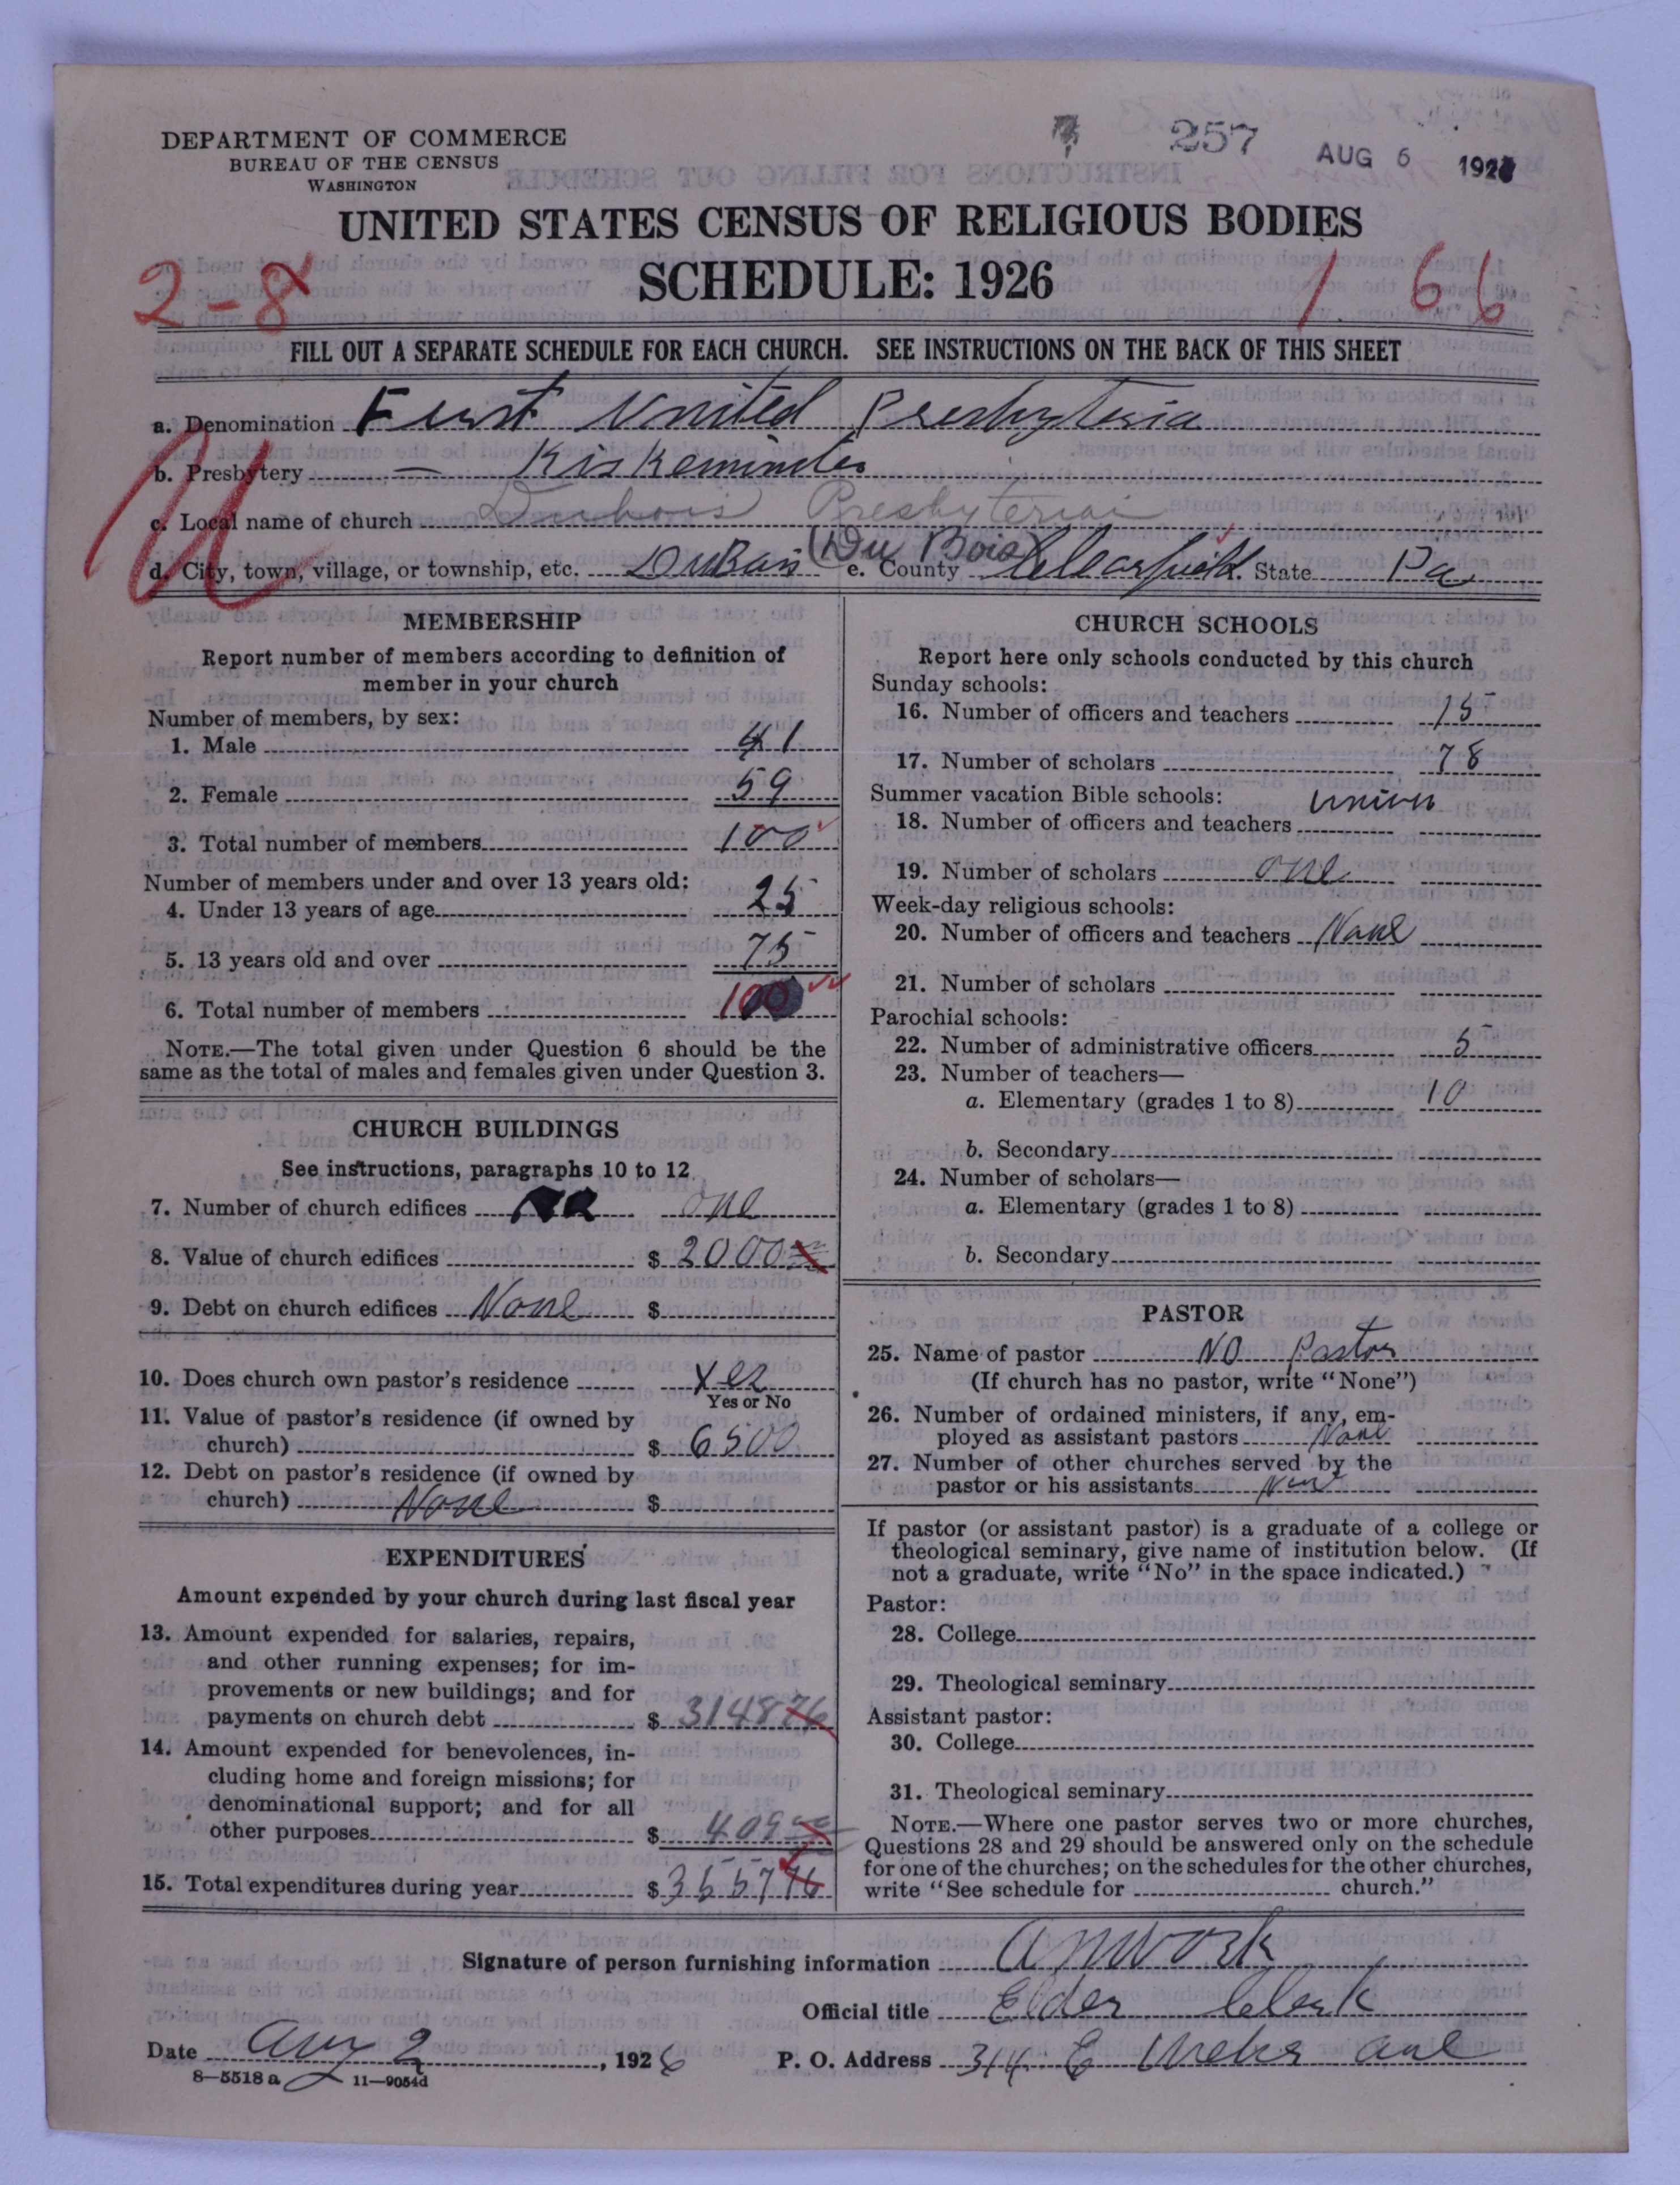 DEPARTMENT OF COMMERCE
BUREAU OF THE CENSUS
WASHINGTON
257
AUG 6 192
UNITED STATES CENSUS OF RELIGIOUS BODIES
SCHEDULE: 1926
2-8
1 66
FILL OUT A SEPARATE SCHEDULE FOR EACH CHURCH. SEE INSTRUCTIONS ON THE BACK OF THIS SHEET
a. Denomination First United Presbyteria
b. Presbytery = Kiskeminder
c. Local name of church Dubois Presbyterian
d. City, town, village, or township, etc. DuBois (Du Bois) e. County Clearfield State Pa
U
MEMBERSHIP
Report number of members according to definition of
member in your church
Number of members, by sex:
1. Male 41
2. Female 59
3. Total number of members 100
Number of members under and over 13 years old:
4. Under 13 years of age 25
5. 13 years old and over 75
6. Total number of members 100
NOTE.—The total given under Question 6 should be the
same as the total of males and females given under Question 3.
CHURCH BUILDINGS
See instructions, paragraphs 10 to 12
7. Number of church edifices one
8. Value of church edifices $ 2000
9. Debt on church edifices None $
10. Does church own pastor's residence Yes
Yes or No
11. Value of pastor's residence (if owned by
church) $ 6500
12. Debt on pastor's residence (if owned by
church) None $
EXPENDITURES
Amount expended by your church during last fiscal year
13. Amount expended for salaries, repairs,
and other running expenses; for im-
provements or new buildings; and for
payments on church debt $ 3148 76
14. Amount expended for benevolences, in-
cluding home and foreign missions; for
denominational support; and for all
other purposes $ 409
15. Total expenditures during year $ 3557 76
CHURCH SCHOOLS
Report here only schools conducted by this church
Sunday schools:
16. Number of officers and teachers 15
17. Number of scholars 78
Summer vacation Bible schools: union
18. Number of officers and teachers
19. Number of scholars one
Week-day religious schools:
20. Number of officers and teachers None
21. Number of scholars
Parochial schools:
22. Number of administrative officers 5
23. Number of teachers—
a. Elementary (grades 1 to 8) 10
b. Secondary
24. Number of scholars—
a. Elementary (grades 1 to 8)
b. Secondary
PASTOR
25. Name of pastor NO Pastor
(If church has no pastor, write "None")
26. Number of ordained ministers, if any, em-
ployed as assistant pastors None
27. Number of other churches served by the
pastor or his assistants None
If pastor (or assistant pastor) is a graduate of a college or
theological seminary, give name of institution below. (If
not a graduate, write "No" in the space indicated.)
Pastor:
28. College
29. Theological seminary
Assistant pastor:
30. College
31. Theological seminary
NOTE.—Where one pastor serves two or more churches,
Questions 28 and 29 should be answered only on the schedule
for one of the churches; on the schedules for the other churches,
write "See schedule for church."
Signature of person furnishing information A M Work
Official title Elder Clerk
Date Aug 2, 1926 P. O. Address 314 E Weber ave
8—5518 a 11—9054d